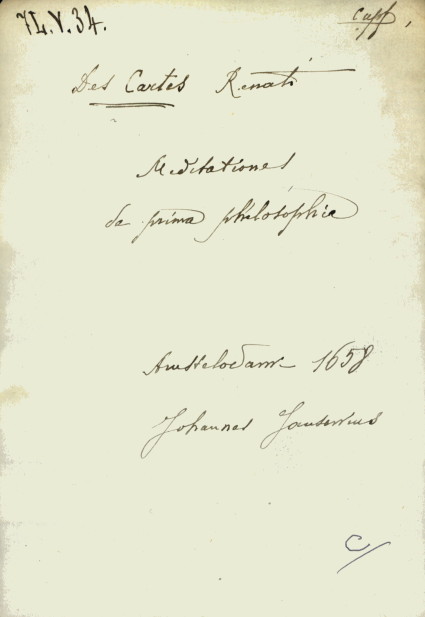 74.V.34.
Des Cartes Renati
Meditationes
de prima philósophia
Amstelodami 1658
Johannes Janssonius
C